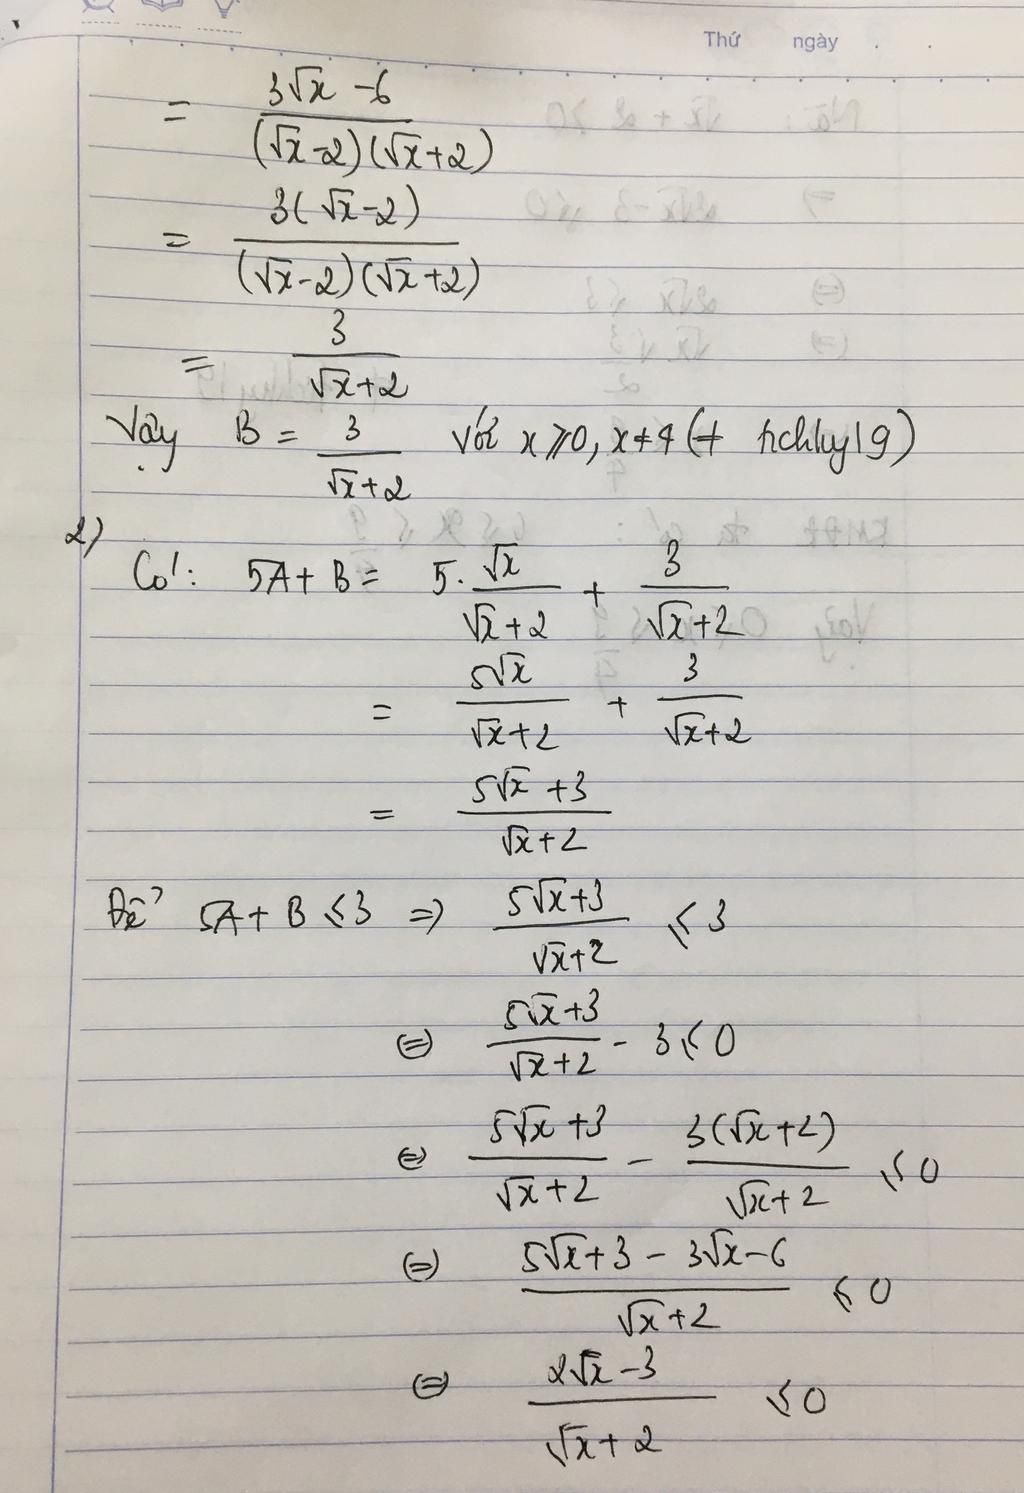 Thứ ngày . .
= (3√x - 6)/((√x-2)(√x+2))
= 3(√x-2)/((√x-2)(√x+2))
= 3/(√x+2)
Vậy B = 3/(√x+2) với x ⩾ 0, x ≠ 4 (+ hchhy19)
2)
Có: 5A + B = 5. √x/(√x+2) + 3/(√x+2)
= 5√x/(√x+2) + 3/(√x+2)
= (5√x + 3)/(√x+2)
Để 5A + B ⩽ 3 => (5√x+3)/(√x+2) ⩽ 3
(=) (5√x+3)/(√x+2) - 3 ⩽ 0
(=) (5√x+3)/(√x+2) - 3(√x+2)/(√x+2) ⩽ 0
(=) (5√x+3 - 3√x-6)/(√x+2) ⩽ 0
(=) (2√x-3)/(√x+2) ⩽ 0